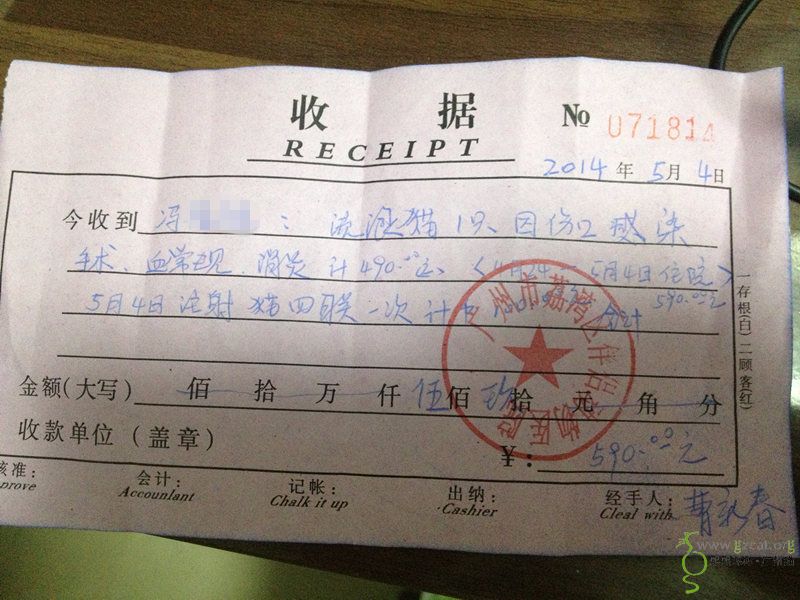 收 据
RECEIPT
№ 071814
2014 年 5 月 4 日
今收到 冯 : 流浪猫1只 因伤口感染
手术、血常规、消炎 计490.00元、<4月24、5月4日住院>
5月4日注射猫四联一次计 合计 590.00元
金额(大写) 佰 拾 万 仟 伍 佰 玖 拾 元 角 分
收款单位(盖章)
¥: 590.00元
核准: 会计: 记帐: 出纳: 经手人:
prove Accounlant Chalk it up Cashier Cleal with
一存根(白)二顾客(红)
广州市荔湾区伴侣动物医院
www.gzcat.org